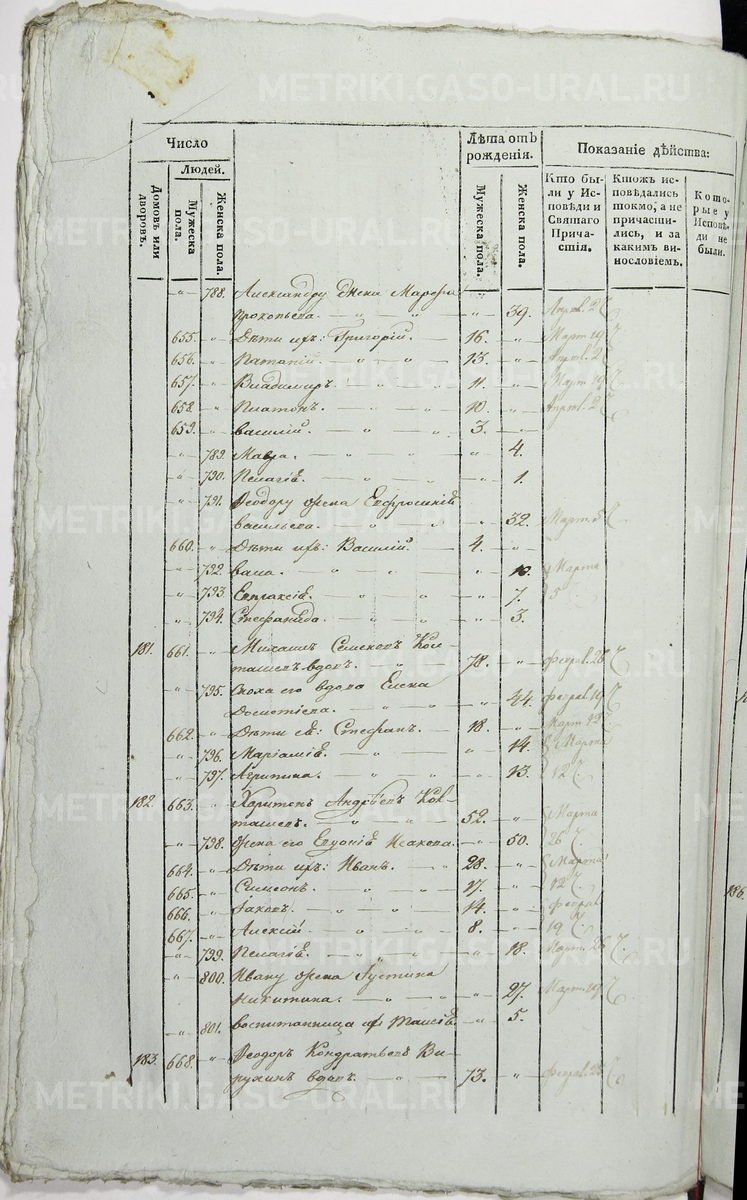 METRIKI.GASO-URAL.RU
Число
Людей.
Домовъ или дворовъ.
Мужеска пола.
Женска пола.
Лѣта отъ рожденія.
Мужеска пола.
Женска пола.
Показаніе дѣйства:
Кто были у Исповѣди и Святаго Причастія.
Ктожъ исповѣдались токмо, а не причастились, и за какимъ винословіемъ.
Которые у Исповѣди не были.
788. Александру жена Марѳа
Прокопьева. 39. Апрѣл. 2
655. Дѣти ихъ: Григорій. 16. Март 19
656. Патапій. 13. Апрѣл. 2
657. Владимиръ. 11. Март 19
658. Платонъ. 10. Апрѣл. 2
659. Василій. 3.
789. Мавра. 4.
790. Пелагія. 1.
791. Ѳеодору жена Евфросинія
Васильева. 32. Март. 5
660. Дѣти ихъ: Василій. 4.
792. 10. Марта
793. Евпраксія. 7. 5
794. Стефанида. 3.
181. 661. Михаилъ Семеновъ
вдовъ. 78. Феврал. 26
795. Сноха его вдова Елена
44. Феврал. 19
662. Дѣти ея: Стефанъ. 18. Март 12
796. Маріамія. 14. Марта
797. Агрипина. 13. 12
182. 663. Харитонъ Андреевъ
52. Марта
798. жена его Евдокія Исакова. 50. 26
664. Дѣти ихъ: Иванъ. 28. Марта
665. Симеонъ. 17. 12
666. Іаковъ. 14. Феврал
667. Алексій. 8. 19
799. Пелагія. 18. Март. 26
800. Ивану жена Іустина
Никитина. 27. Март. 19
801. воспитанница их Таисія. 5.
183. 668. Ѳеодоръ Кондратьевъ
вдовъ. 73. Феврал. 26
186.